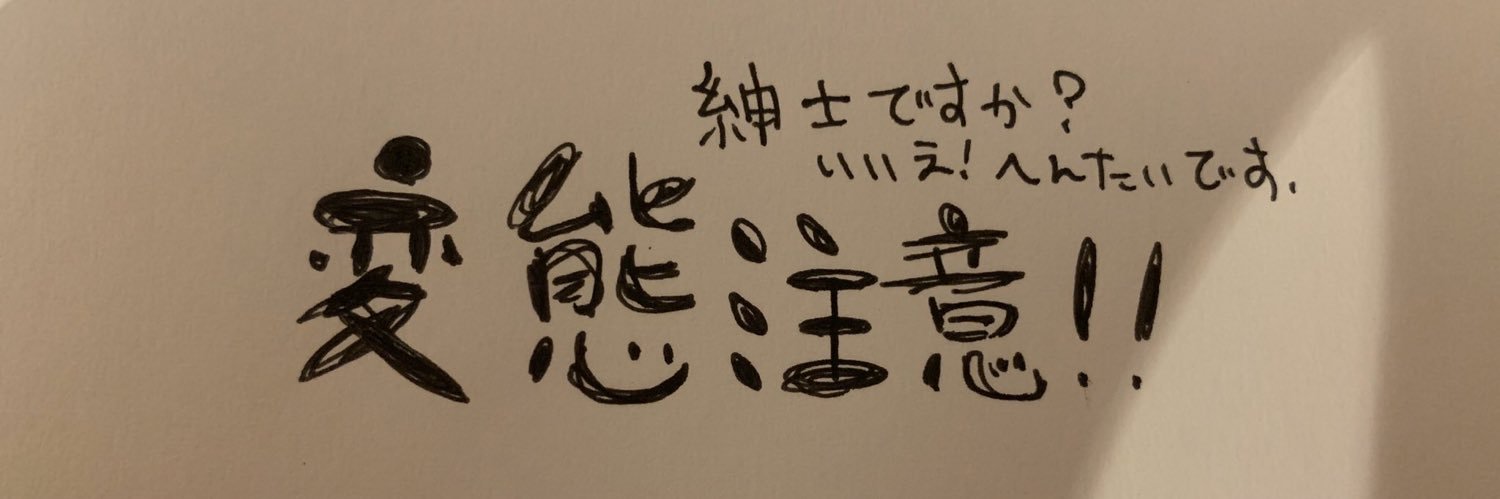 紳士ですか?
いいえ!へんたいです.
変態注意!!